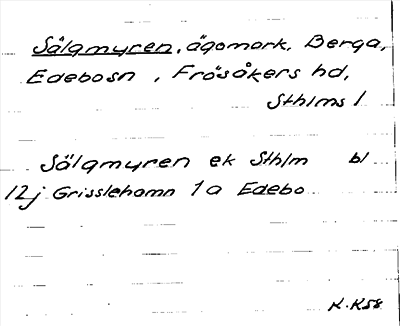 Sälgmyren, ägomark, Berga,
Edebosn, Frösåkers hd,
Sthlms l
Sälgmyren ek Sthlm bl
12j Grisslehamn 1a Edebo
K.K58